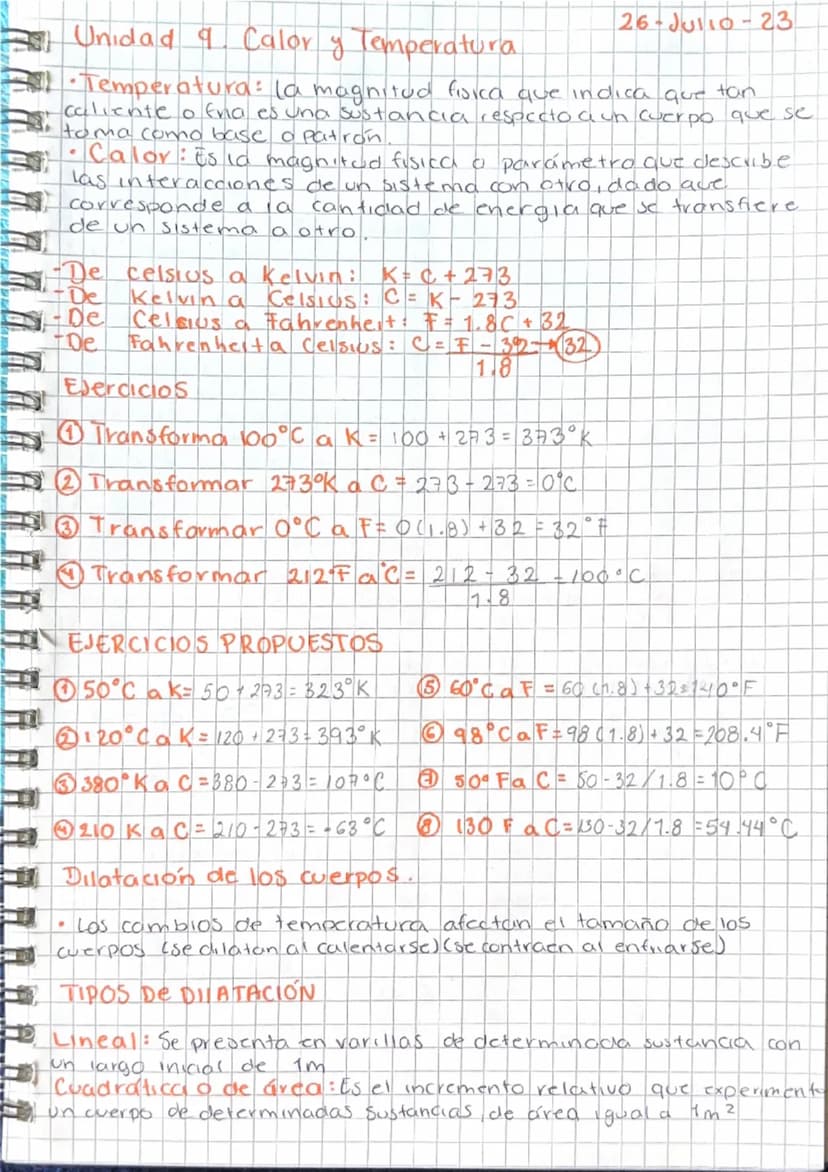 26-Julio-23
Unidad 9. Calor y Temperatura
• Temperatura: la magnitud fisica que indica que tan
caliente o fria es una sustancia respecto a un cuerpo que se
toma como base o patrón.
• Calor: Es la magnitud fisica o parámetro que describe
las interacciones de un sistema con otro, dado que
corresponde a la cantidad de energia que se transfiere
de un sistema a otro.
-De celsius a Kelvin: K= C + 273
-De Kelvin a Celsius: C= K - 273
-De Celsius a Fahrenheit: F= 1.8C + 32
-De Fahrenheit a Celsius: C= F - 32 → 32
1.8
Ejercicios
① Transforma 100°C a K = 100 + 273 = 373°K
② Transformar 273°K a C = 273 - 273 = 0°C
③ Transformar 0°C a F= 0(1.8) + 32 = 32°F
④ Transformar 212°F a °C = 212 - 32 = 100°C
1.8
EJERCICIOS PROPUESTOS
① 50°C a K= 50 + 273 = 323°K ⑤ 60°C a F = 60 (1.8) + 32 = 140°F
② 120°C a K = 120 + 273 = 393°K ⑥ 98°C a F= 98(1.8) + 32 = 208.4°F
③ 380°K a C = 380 - 273 = 107°C ⑦ 50° F a C = 50 - 32 / 1.8 = 10°C
④ 210 K a C = 210 - 273 = -63°C ⑧ 130 F a C= 130-32/1.8 = 54.44°C
Dilatación de los cuerpos.
• Los cambios de temperatura afectan el tamaño de los
cuerpos (se dilatan al calentarse) (se contraen al enfriarse)
TIPOS DE DILATACIÓN
Lineal: Se presenta en varillas de determinada sustancia con
un largo inicial de 1m
Cuadrática o de área: Es el incremento relativo que experimenta
un cuerpo de determinadas sustancias, de área igual a 1m²